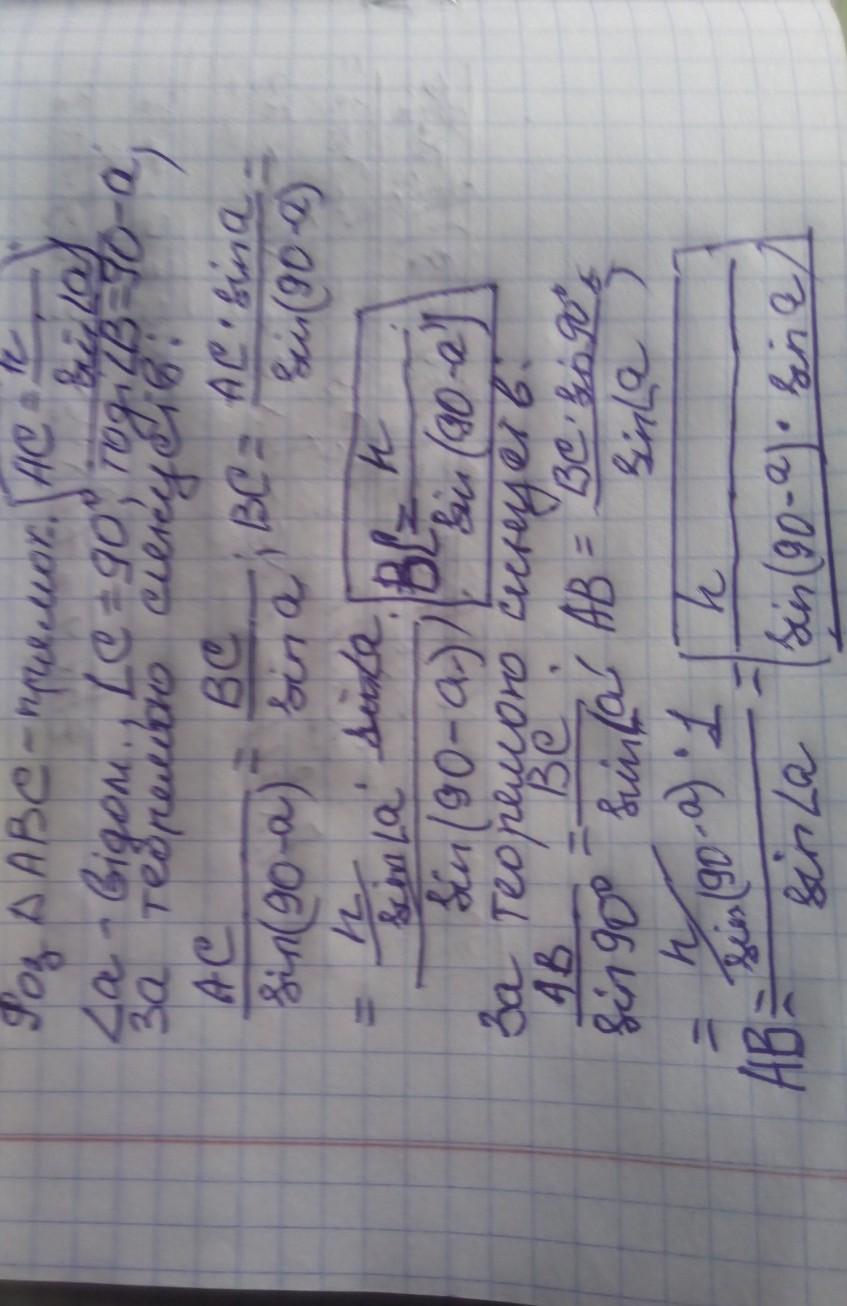 Роз Δ ABC - прямок. AC = h / sin∠a
∠a - відом., ∠C = 90°, тоді ∠B = 90-a,
За теоремою синусів:
AC / sin(90-a) = BC / sin a ; BC = AC · sin a / sin(90-a) =
= h / sin∠a · sin∠a / sin(90-a) ; BC = h / sin(90-a)
За теоремою синусів:
AB / sin 90° = BC / sin∠a ; AB = BC · sin 90° / sin∠a ;
AB = h / sin(90-a) · 1 / sin∠a = h / sin(90-a) · sin a